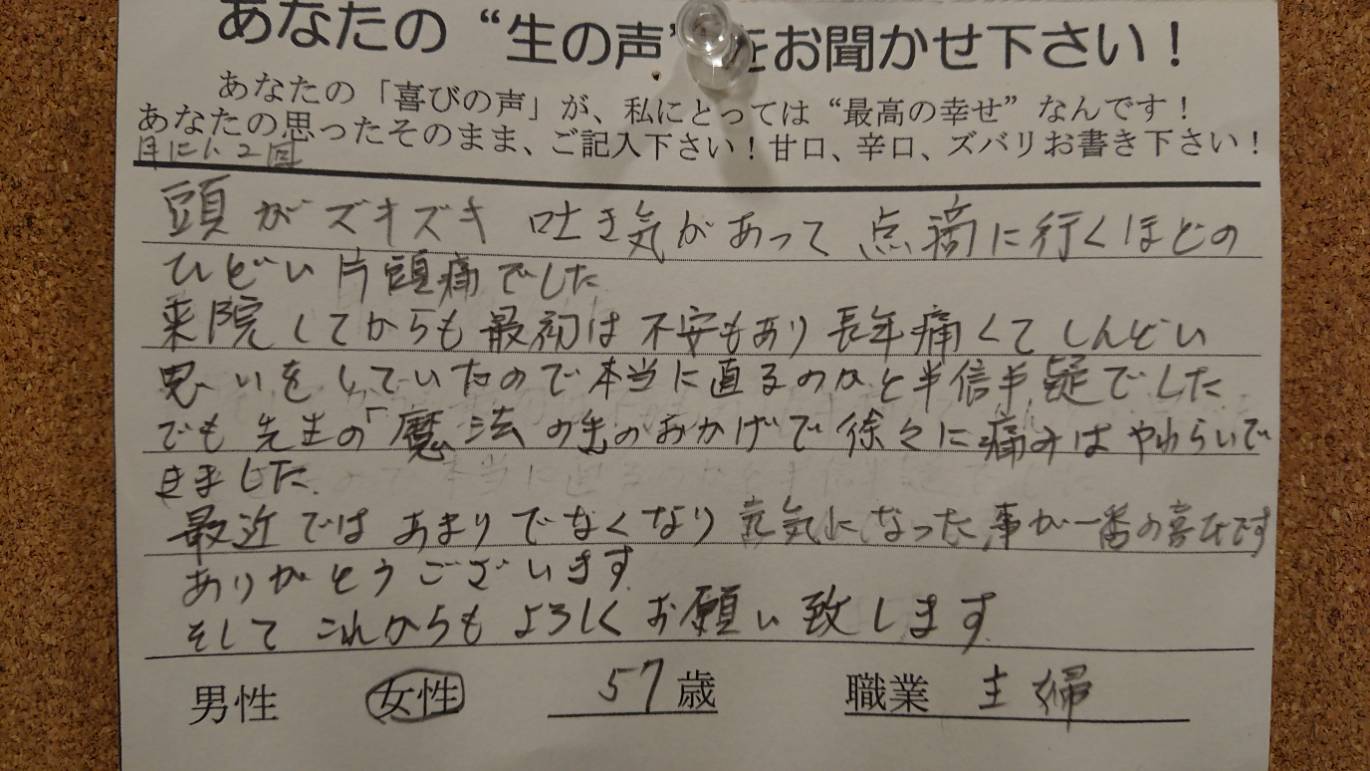 あなたの“生の声”をお聞かせ下さい！
あなたの「喜びの声」が、私にとっては“最高の幸せ”なんです！
あなたの思ったそのまま、ご記入下さい！甘口、辛口、ズバリお書き下さい！
月に1、2回
頭がズキズキ 吐き気があって 点滴に行くほどの
ひどい片頭痛でした
来院してからも最初は不安もあり長年痛くてしんどい
思いをしていたので本当に直るのかと半信半疑でした
でも先生の「魔法の手のおかげで徐々に痛みはやわらいで
きました.
最近ではあまりでなくなり元気になった事が一番の喜びです
ありがとうございます
そしてこれからもよろしくお願い致します.
男性 女性 57歳 職業 主婦